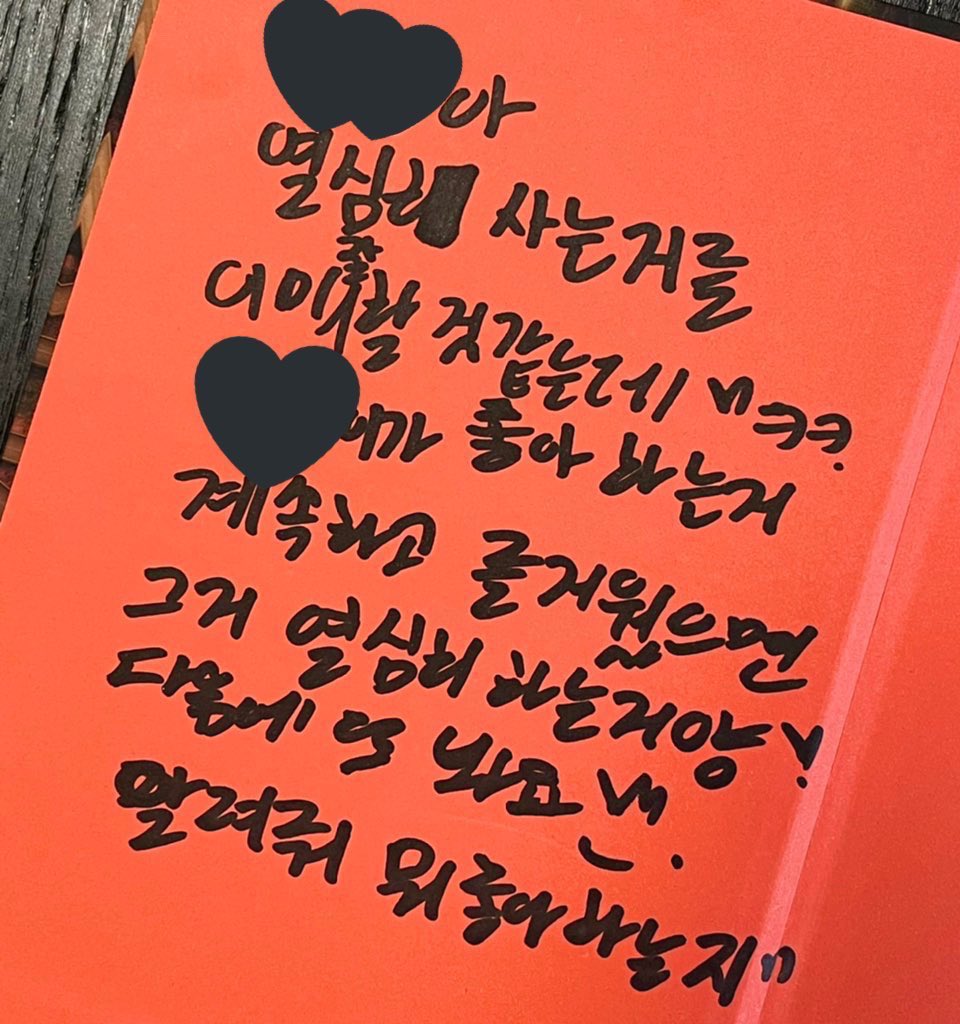 아
열심히 사는거를
너 이미 잘 할 것 같은데 ㅋㅋ?
이가 좋아 하는거
계속하고 즐거웠으면
그거 열심히 하는거양!
다음에 또 봐요
알려줘 뭐 좋아하는지"